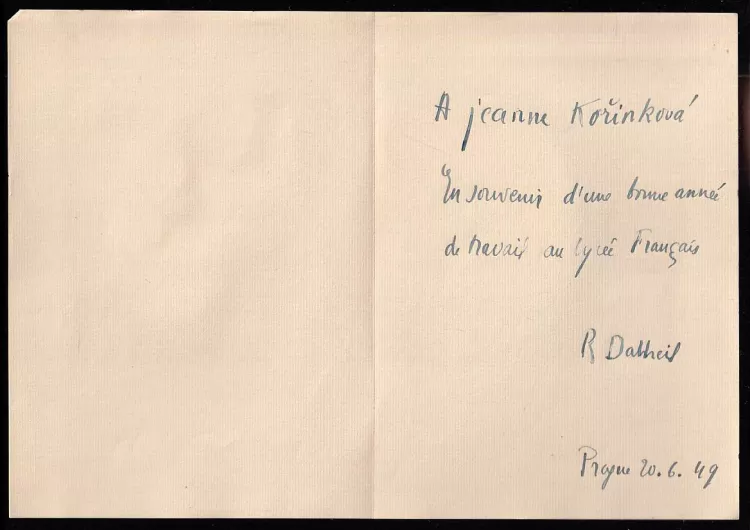 A jeanne Kořinková
En souvenir d'une bonne année
de travail au lycée Français
R Datheil
Prague 20.6.49